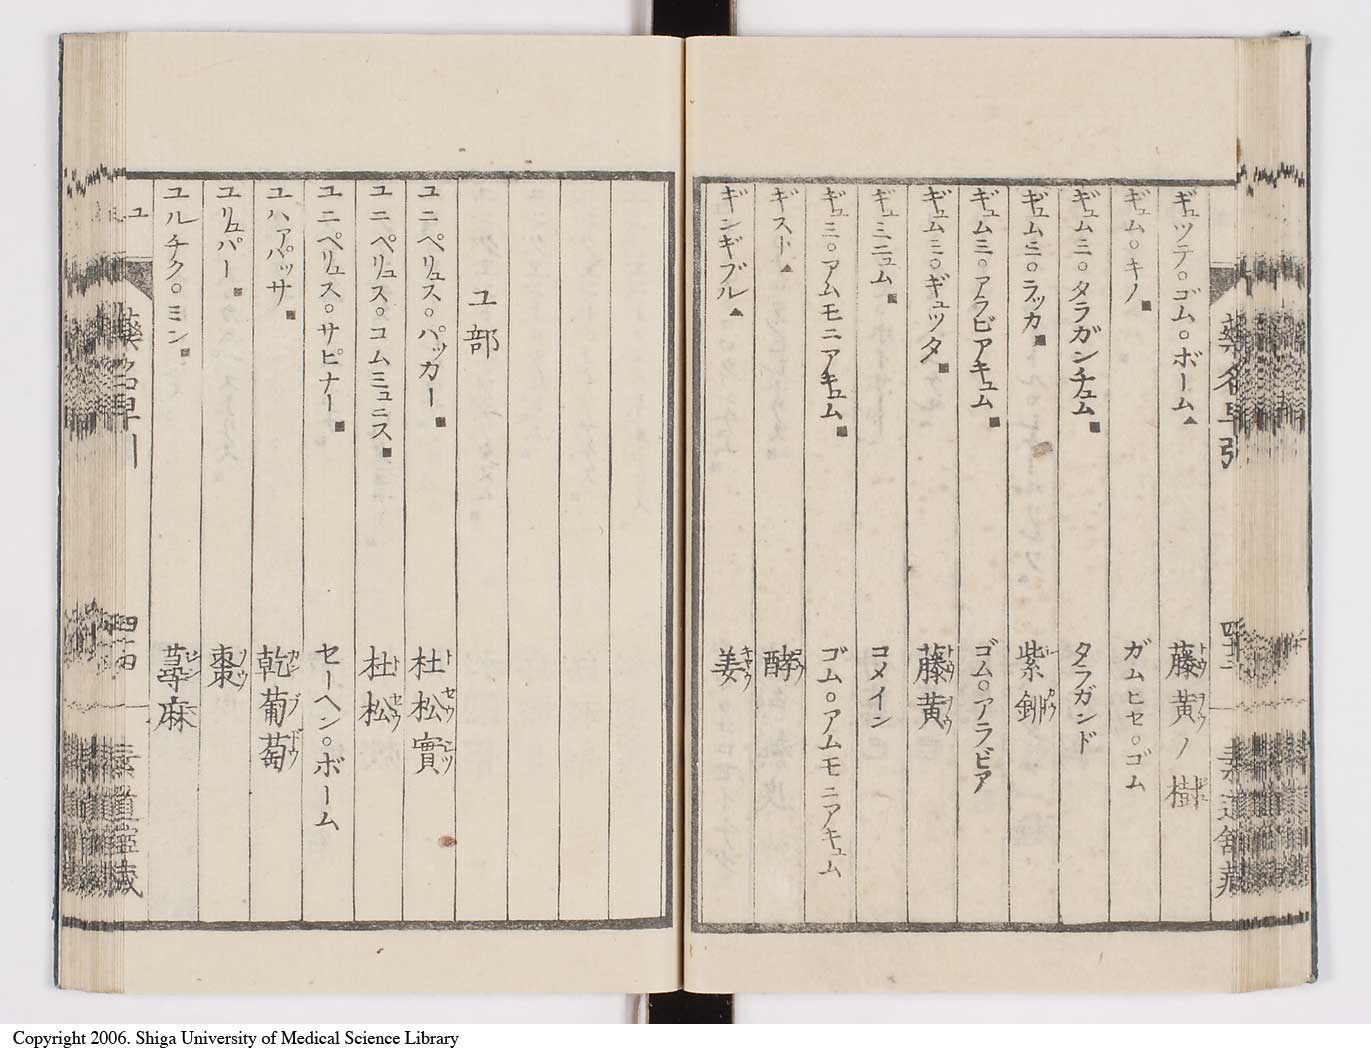 藥名早引 四十三
ギュツテ○ゴム○ボーム▲ 藤黄ノ樹
ギュム○キノ■ ガムヒセ○ゴム
ギュムミ○タラガンチュム■ タラガンド
ギュムミ○ラッカ■ 紫鉚
ギュムミ○アラビアキュム■ ゴム○アラビア
ギュムミ○ギュッタ■ 藤黄
ギュミニュム■ コメイン
ギュミ○アムモニアキュム■ ゴム○アムモニアキュム
ギスト▲ 酵
ギンギブル▲ 姜
ユ部
ユニペリュス○パッカー■ 杜松實
ユニペリュス○コムミュニス■ 杜松
ユニペリュス○サピナー■ セーヘン○ボーム
ユハアパッサ■ 乾葡萄
ユリュパー■ 棗
ユルチク○ミン■ 蕁麻
ユ
Copyright 2006. Shiga University of Medical Science Library